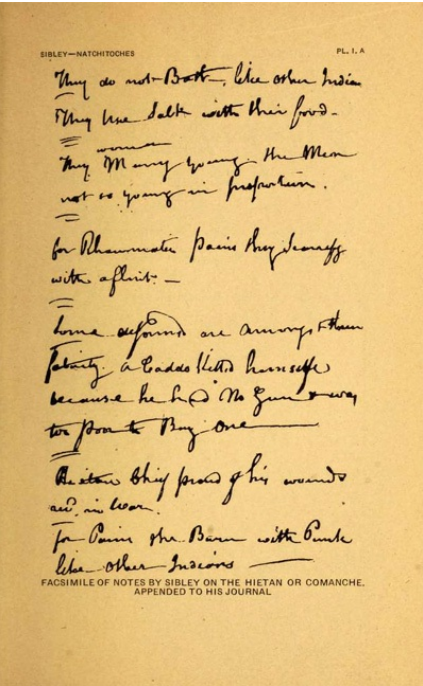 SIBLEY—NATCHITOCHES
PL. I, A
They do not Bath, like other Indian
They Use Salt with their food.
women
They Marry young the Men
not so young in proportion.
for Rheumatic pains they
with a flint. —
Some deformed are amongst them
a Caddo Killed himself
because he had No Gun & was
too poor to Buy one —
Chief proud of his wounds
in War.
for Pains the Burn with Punk
like other Indians —
FACSIMILE OF NOTES BY SIBLEY ON THE HIETAN OR COMANCHE,
APPENDED TO HIS JOURNAL